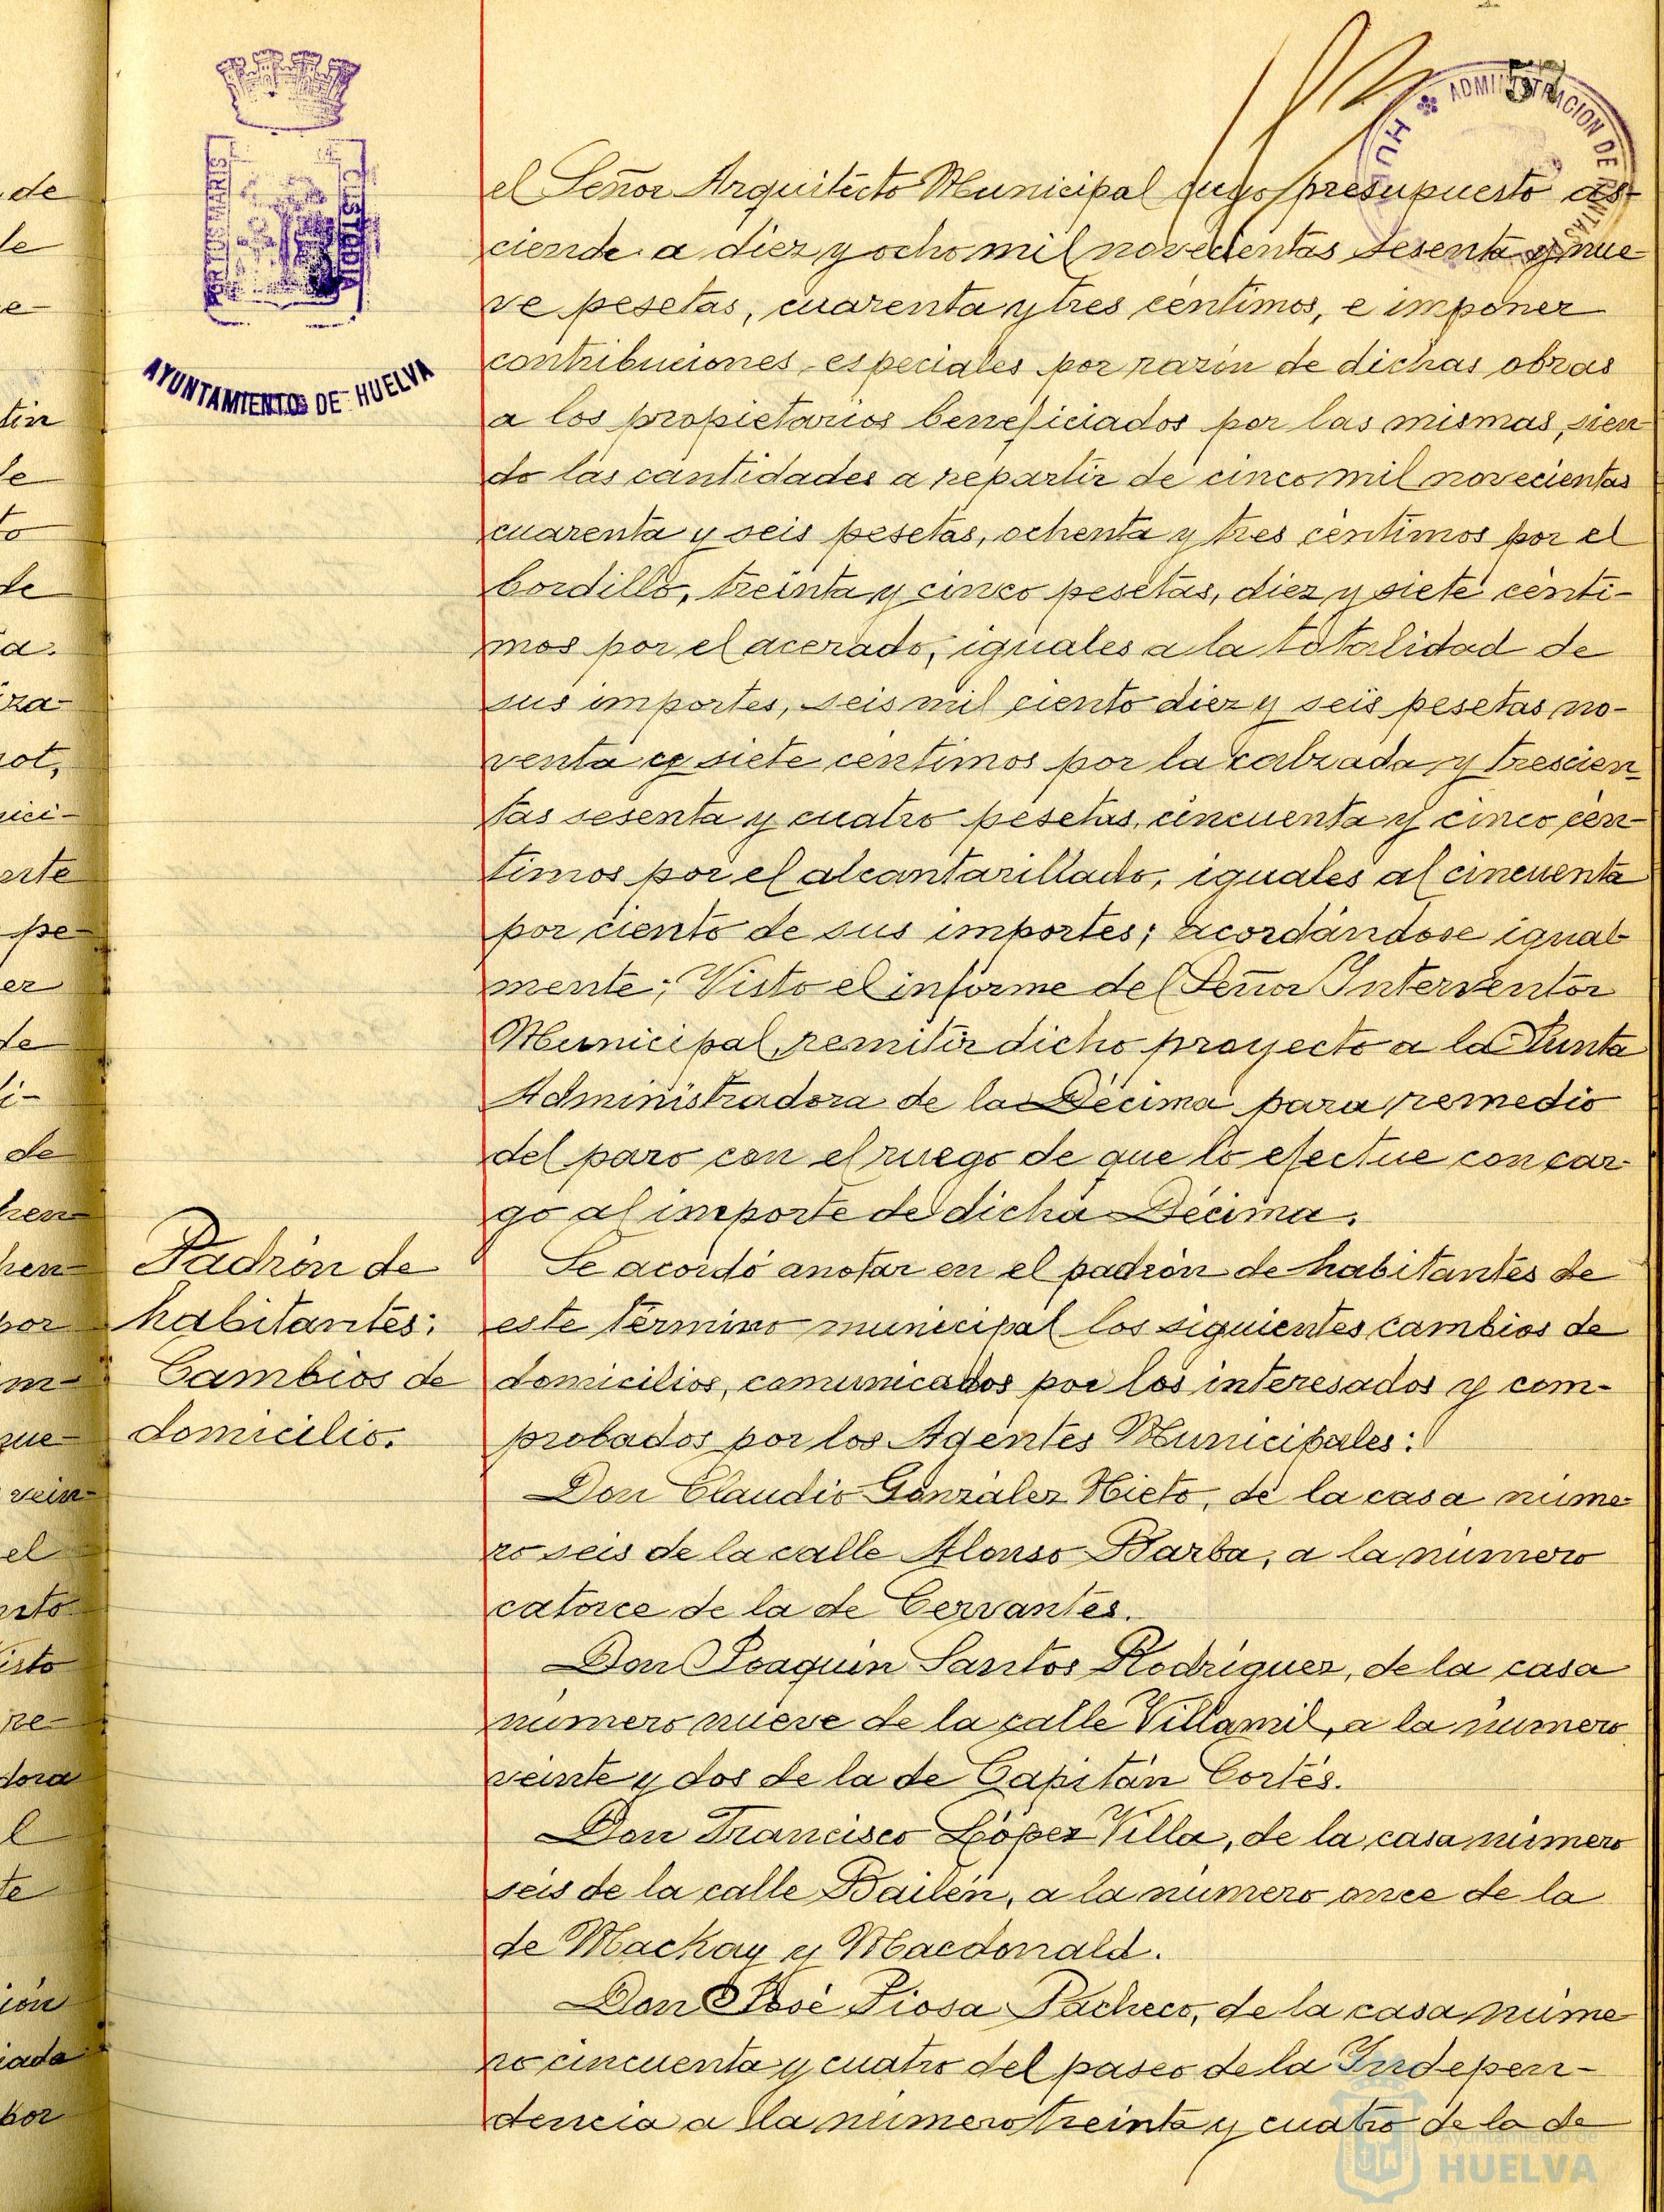 57
ADMINISTRACION DE RENTAS
PORTUS MARIS
CUSTODIA
AYUNTAMIENTO DE HUELVA
el Señor Arquitecto Municipal cuyo presupuesto as-
ciende a diez y ocho mil novecientas sesenta y nue-
ve pesetas, cuarenta y tres céntimos, e imponer
contribuciones especiales por razón de dichas obras
a los propietarios beneficiados por las mismas, sien-
do las cantidades a repartir de cinco mil novecientas
cuarenta y seis pesetas, ochenta y tres céntimos por el
bordillo, treinta y cinco pesetas, diez y siete cénti-
mos por el acerado, iguales a la totalidad de
sus importes, seis mil ciento diez y seis pesetas no-
venta y siete céntimos por la calzada y trescien-
tas sesenta y cuatro pesetas, cincuenta y cinco cén-
timos por el alcantarillado, iguales al cincuenta
por ciento de sus importes; acordándose igual-
mente; Visto el informe del Señor Interventor
Municipal, remitir dicho proyecto a la Junta
Administradora de la Décima para remedio
del paro con el ruego de que lo efectue con car-
go al importe de dicha Décima.
Padrón de
habitantes:
Cambios de
domicilio.
Se acordó anotar en el padrón de habitantes de
este término municipal los siguientes cambios de
domicilios, comunicados por los interesados y com-
probados por los Agentes Municipales:
Don Claudio González Nieto, de la casa núme-
ro seis de la calle Alonso Barba, a la número
catorce de la de Cervantes.
Don Joaquín Santos Rodríguez, de la casa
número nueve de la calle Villamil, a la número
veinte y dos de la de Capitán Cortés.
Don Francisco López Villa, de la casa número
seis de la calle Bailén, a la número once de la
de Mackay y Macdonald.
Don José Piosa Pacheco, de la casa núme-
ro cincuenta y cuatro del paseo de la Indepen-
dencia a la número treinta y cuatro de la de
Ayuntamiento de
HUELVA